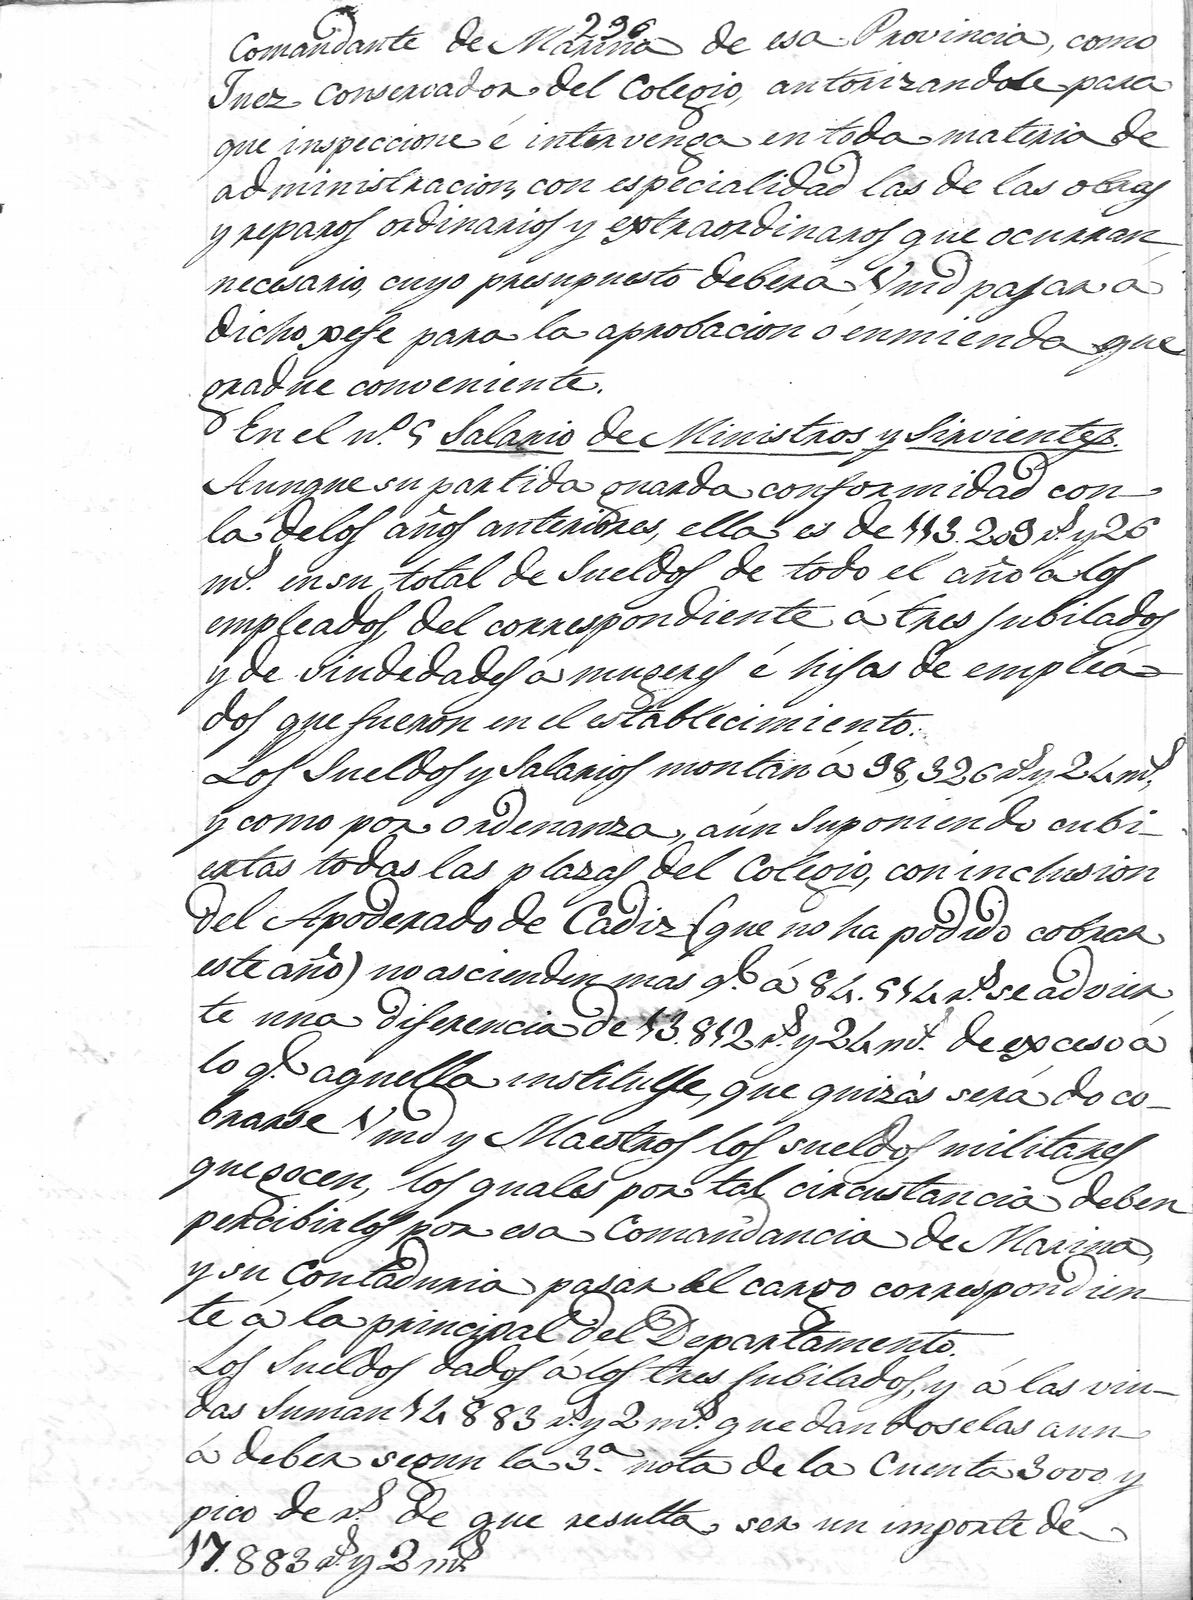 296
Comandante de Marina de esa Provincia, como
Juez Conservador del Colegio, autorizandole para
que inspeccione é intervenga en toda materia de
administracion, con especialidad las de las obras
y reparos ordinarios y extraordinaros que ocurran
necesario, cuyo presupuesto deberá Vmd pasar á
dicho xefe para la aprobacion ó enmienda que
gradue conveniente.
En el nº. 5 Salario de Ministros y Sirvientes.
Aunque su partida guarda conformidad con
la delos años anteriores, ella es de 113.203 rs. y 26
ms. en su total de Sueldos de todo el año a los
empleados, del correspondiente á tres jubilados
y de viudedades á mugeres é hijas de emplea-
dos que fueron en el establecimiento.
Los Sueldos y Salarios montan á 98,326 rs. y 24 ms.,
y como por ordenanza, aún suponiendo cubi-
ertas todas las plazas del Colegio, con inclusion
del Apoderado de Cadiz (que no ha podido cobrar
este año) no ascienden mas qe. á 84.514 rs. se advier
te una diferencia de 13.812 rs. y 24 ms. de exceso á
lo qe. aquella instituye, que quizás será do co-
brarse Vmd y Maestros los sueldos militares
que gocen, los quales por tal circustancia deben
percibirlos por esa Comandancia de Marina,
y su Contaduria pasar el cargo correspondien-
te á la principal del Departamento.
Los Sueldos dados á los tres jubilados, y á las viu-
das suman 14883 rs. y 2 ms. quedandoselas aun
á deber segun la 3.ª nota de la Cuenta 3000 y
pico de rs. de que resulta ser un importe de
17.883 rs. y 2 ms.